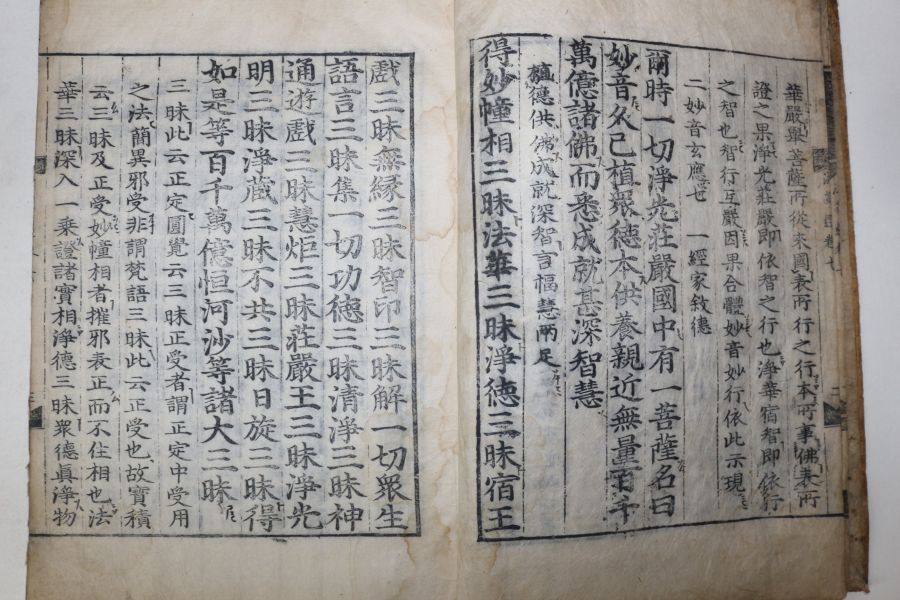 華嚴舉菩薩所從來國表所行之行本所事佛表所
證之果淨光莊嚴即依智之行也淨華宿智即依行
之智也智行互嚴因果合體妙音妙行依此示現
二妙音玄應也 一經家敘德
爾時一切淨光莊嚴國中有一菩薩名曰
妙音久已植眾德本供養親近無量百千
萬億諸佛而悉成就甚深智慧
植德供佛成就深智言福慧兩足
得妙幢相三昧法華三昧淨德三昧宿王
戲三昧無緣三昧智印三昧解一切眾生
語言三昧集一切功德三昧清淨三昧神
通遊戲三昧慧炬三昧莊嚴王三昧淨光
明三昧淨藏三昧不共三昧日旋三昧得
如是等百千萬億恒河沙等諸大三昧
三昧此云正定圓覺云三昧正受者謂正定中受用
之法簡異邪受非謂梵語三昧此云正受也故寶積
云三昧及正受妙幢相者摧邪表正而不住相也法
華三昧深入一乘證諸實相淨德三昧眾德真淨物